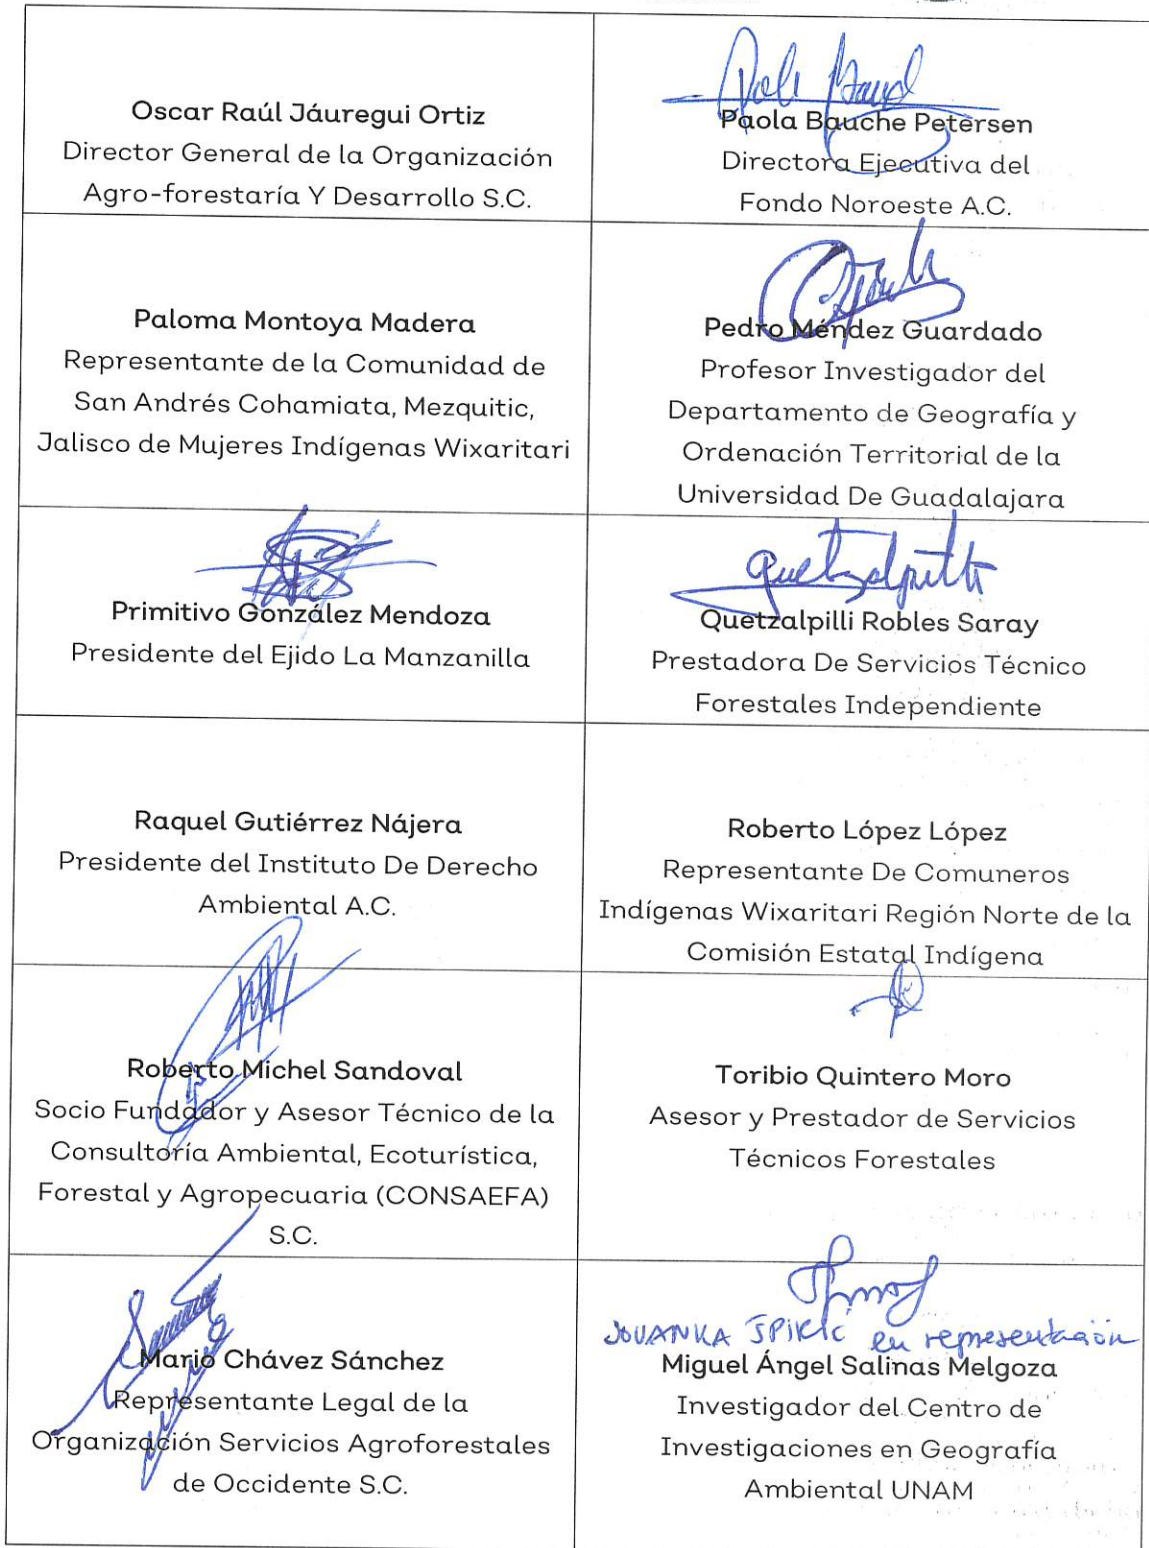 Oscar Raúl Jáuregui Ortiz
Director General de la Organización
Agro-forestaría Y Desarrollo S.C.
Paola Bauche Petersen
Directora Ejecutiva del
Fondo Noroeste A.C.
Paloma Montoya Madera
Representante de la Comunidad de
San Andrés Cohamiata, Mezquitic,
Jalisco de Mujeres Indígenas Wixaritari
Pedro Méndez Guardado
Profesor Investigador del
Departamento de Geografía y
Ordenación Territorial de la
Universidad De Guadalajara
Primitivo González Mendoza
Presidente del Ejido La Manzanilla
Quetzalpilli
Quetzalpilli Robles Saray
Prestadora De Servicios Técnico
Forestales Independiente
Raquel Gutiérrez Nájera
Presidente del Instituto De Derecho
Ambiental A.C.
Roberto López López
Representante De Comuneros
Indígenas Wixaritari Región Norte de la
Comisión Estatal Indígena
Roberto Michel Sandoval
Socio Fundador y Asesor Técnico de la
Consultoría Ambiental, Ecoturística,
Forestal y Agropecuaria (CONSAEFA)
S.C.
Toribio Quintero Moro
Asesor y Prestador de Servicios
Técnicos Forestales
Mario Chávez Sánchez
Representante Legal de la
Organización Servicios Agroforestales
de Occidente S.C.
JOVANKA ŠPIRIĆ en representación
Miguel Ángel Salinas Melgoza
Investigador del Centro de
Investigaciones en Geografía
Ambiental UNAM